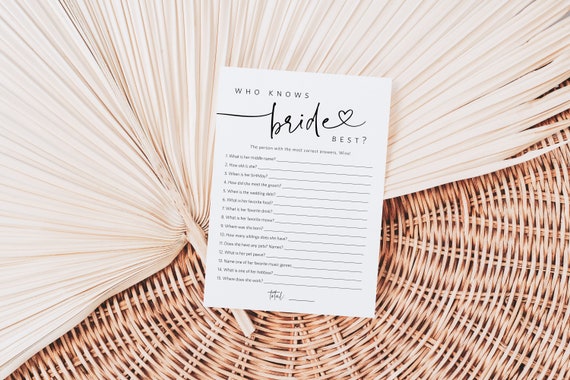 WHO KNOWS
bride
BEST?
The person with the most correct answers, Wins!
1. What is her middle name?
2. How old is she?
3. When is her birthday?
4. How did she meet the groom?
5. When is the wedding date?
6. What is her favorite food?
7. What is her favorite drink?
8. What is her favorite movie?
9. Where was she born?
10. How many siblings does she have?
11. Does she have any pets? Names?
12. What is her pet peeve?
13. Name one of her favorite music genres
14. What is one of her hobbies?
15. Where does she work?
total: